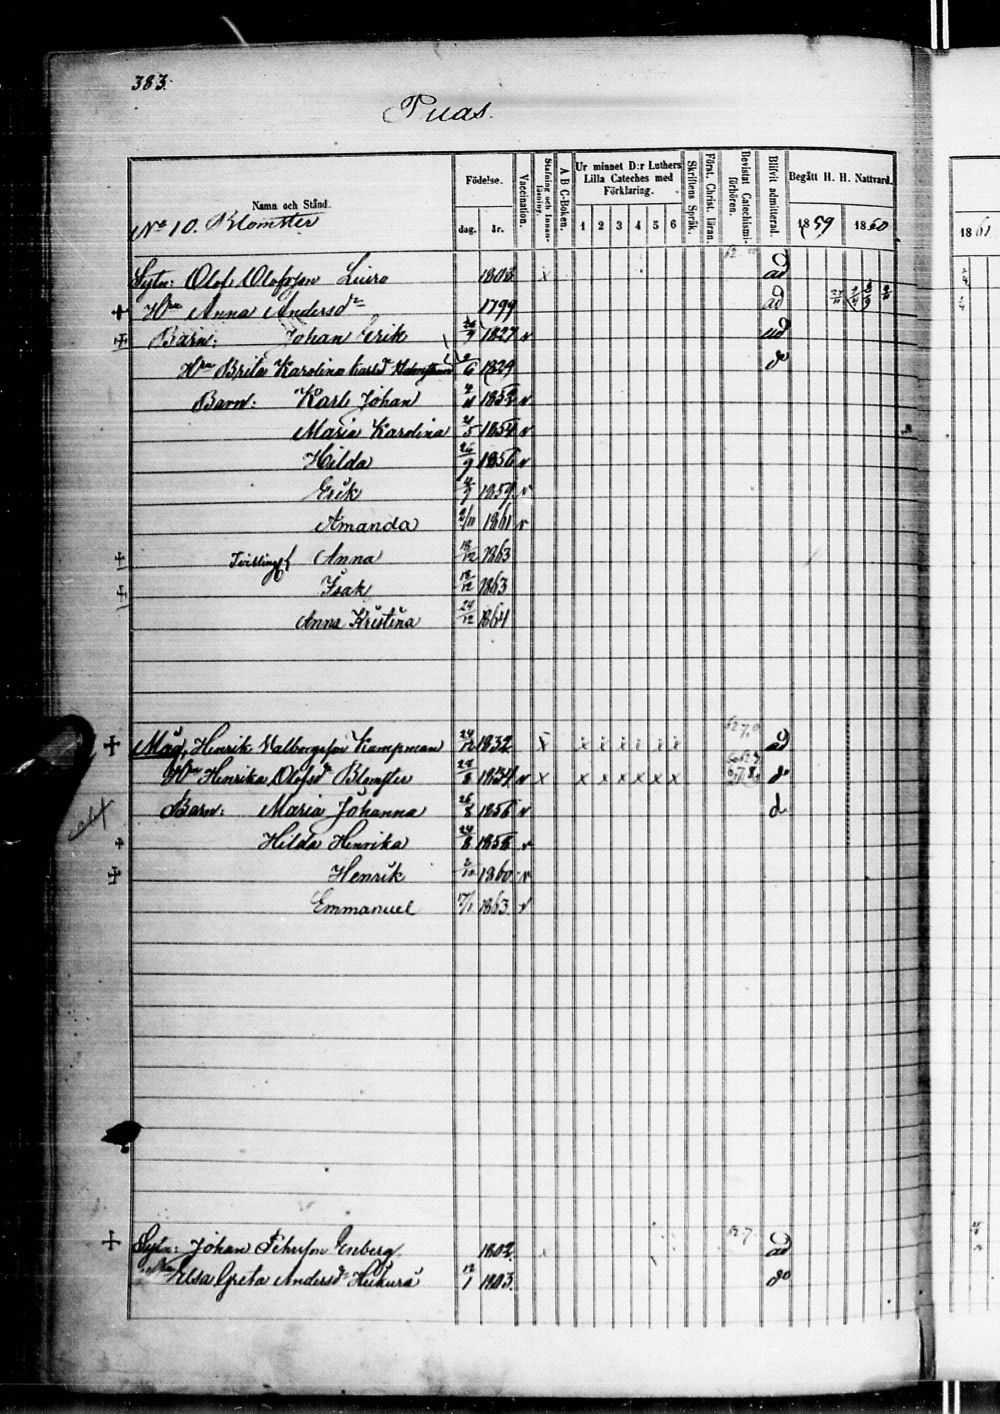 383.
Puas.
Namn och Stånd.
Födelse.
dag. år.
Vaccination.
Stafning och Innan-läsning.
A B C-Boken.
Ur minnet D:r Luthers Lilla Cateches med Förklaring.
1 2 3 4 5 6
Skriftens Språk.
Först. Christ. läran.
Bevistat Catechismi-förhören.
Blifvit admitterad.
Begått H. H. Nattvard.
1859 1860
1861
No 10. Blomster
Sytn: Olof Olofsson Luiro 1803 x ad
Hu Anna Andersd 1799 ad
Barn: Johan Erik 1827 v ad
Hu Brita Karolina 6 1829 do
Barn: Karl Johan 11 1852 v
Maria Karolina 5 1854 v
Hilda 26/9 1856 v
Erik 1859 v
Amanda 2/11 1861 v
Tvillingar Anna 18/12 1863
Isak 18/12 1863
Anna Kristina 24/12 1864
Måg, Henrik Valborgsson Kampman 24/12 1832 x ad
Hu Henrika Olofsdr Blomster 1834 v x x x x x x x do
Barn: Maria Johanna 26/8 1856 v d
Hilda Henrika 24/8 1858 v
Henrik 1860 v
Emmanuel 17/1 1863 v
Sytn: Johan Pehrsson Enberg 1802. ad
Elsa Greta Andersdr Heikura 12/1 1803. do